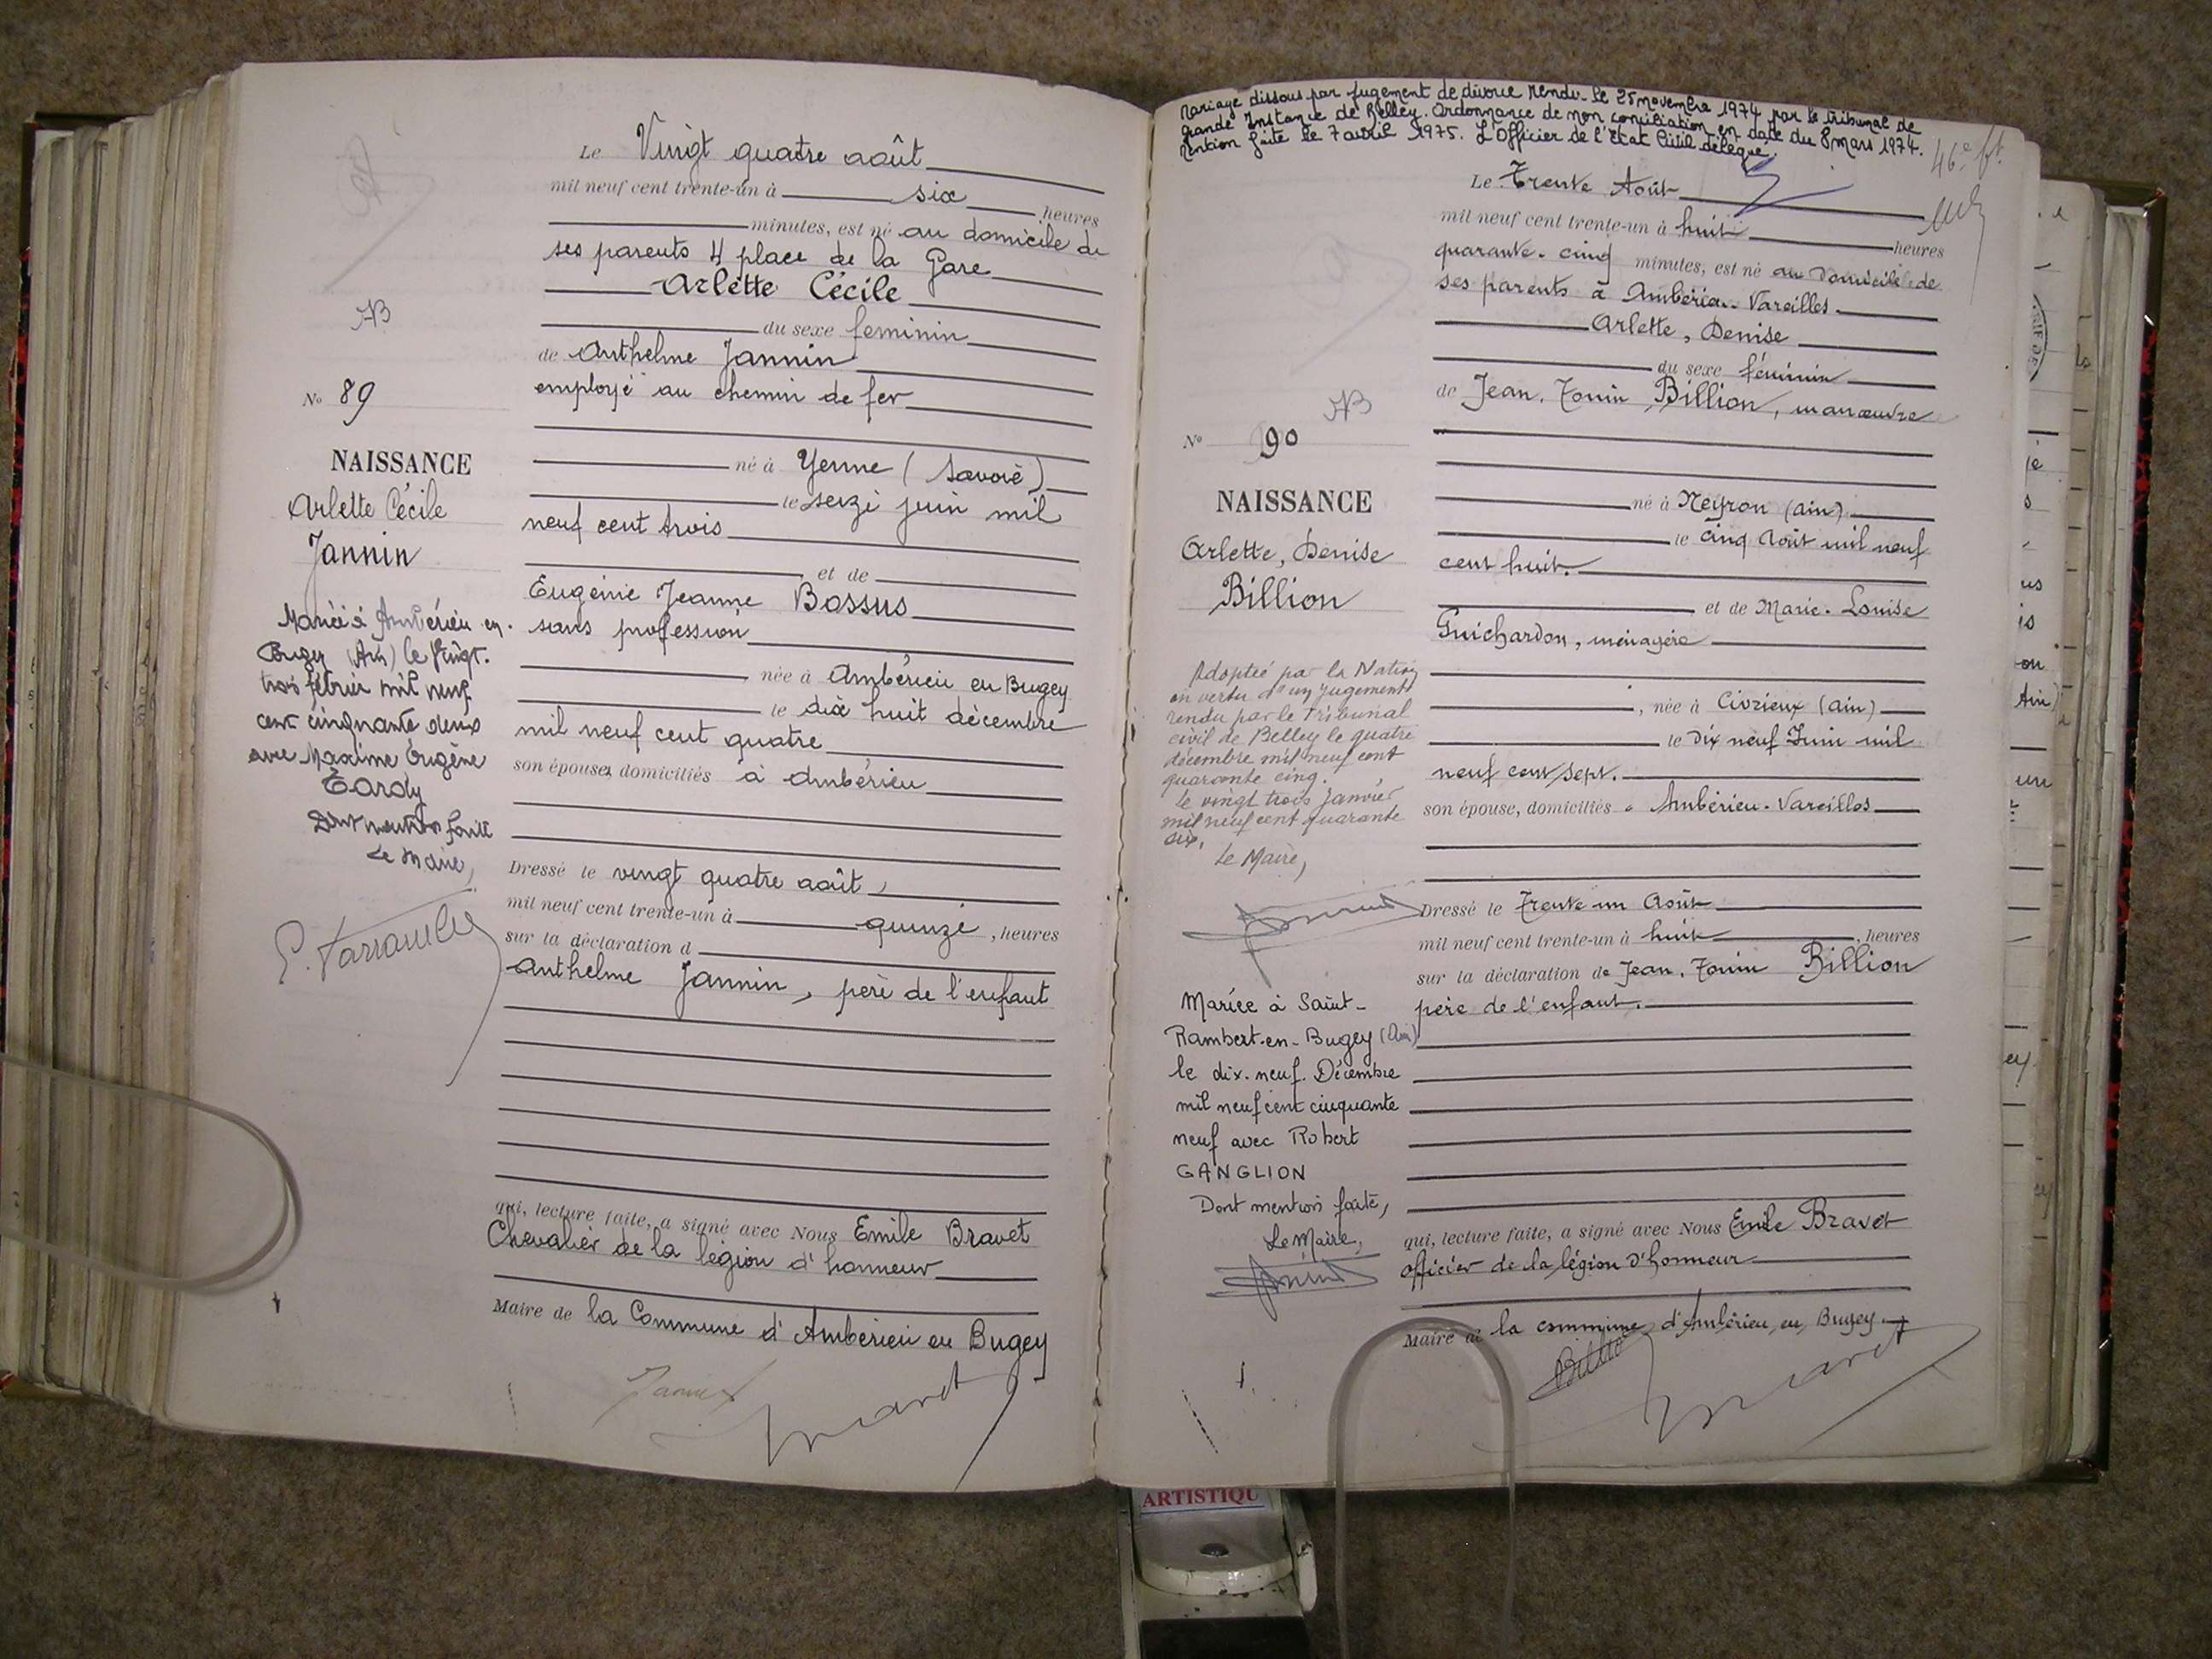 Le Vingt quatre août
mil neuf cent trente-un à six heures
minutes, est né au domicile de
ses parents 4 place de la Gare
Arlette Cécile
du sexe feminin
de Anthelme Jannin
employé au chemin de fer
né à Yenne (Savoie)
le seize juin mil
neuf cent trois
et de
Eugénie Jeanne Bossus
sans profession
née à Ambérieu en Bugey
le dix huit décembre
mil neuf cent quatre
son épouse, domiciliés à Ambérieu
Dressé le vingt quatre août,
mil neuf cent trente-un à quinze, heures
sur la déclaration d
Anthelme Jannin, père de l'enfant
qui, lecture faite, a signé avec Nous Emile Bravet
Chevalier de la légion d'honneur
Maire de la Commune d'Ambérieu en Bugey
Jannin
AB
No 89
NAISSANCE
Arlette Cécile
Jannin
Mariée à Ambérieu en-
Bugey (Ain) le vingt-
trois février mil neuf
cent cinquante deux
avec Maxime Eugène
Tardy
Dont mention faite
Le Maire,
Mariage dissous par jugement de divorce rendu le 25 novembre 1974 par le tribunal de
Grande Instance de Belley. Ordonnance de non conciliation en date du 8 mars 1974.
Mention faite le 7 avril 1975. L'Officier de l'Etat Civil délégué.
46e ft.
Le Trente Août
mil neuf cent trente-un à huit heures
quarante-cinq minutes, est né au domicile de
ses parents à Ambérieu-Vareilles
Arlette, Denise
du sexe féminin
de Jean, Tonin Billion, manœuvre
né à Neyron (Ain)
le cinq Août mil neuf
cent huit.
et de Marie-Louise
Guichardon, ménagère
, née à Civrieux (Ain)
le dix neuf Juin mil
neuf cent sept.
son épouse, domiciliés à Ambérieu-Vareilles
Dressé le Trente un Août
mil neuf cent trente-un à huit, heures
sur la déclaration de Jean, Tonin Billion
père de l'enfant.
qui, lecture faite, a signé avec Nous Emile Bravet
officier de la légion d'honneur
Maire de la commune d'Ambérieu en Bugey
AB
No 90
NAISSANCE
Arlette, Denise
Billion
Adoptée par la Nation
en vertu d'un jugement
rendu par le Tribunal
civil de Belley le quatre
décembre mil neuf cent
quarante cinq.
Le vingt trois Janvier
mil neuf cent quarante
six,
Le Maire,
Mariée à Saint-
Rambert-en-Bugey (Ain)
le dix-neuf Décembre
mil neuf cent cinquante
neuf avec Robert
GANGLION
Dont mention faite,
Le Maire,
ARTISTIQU